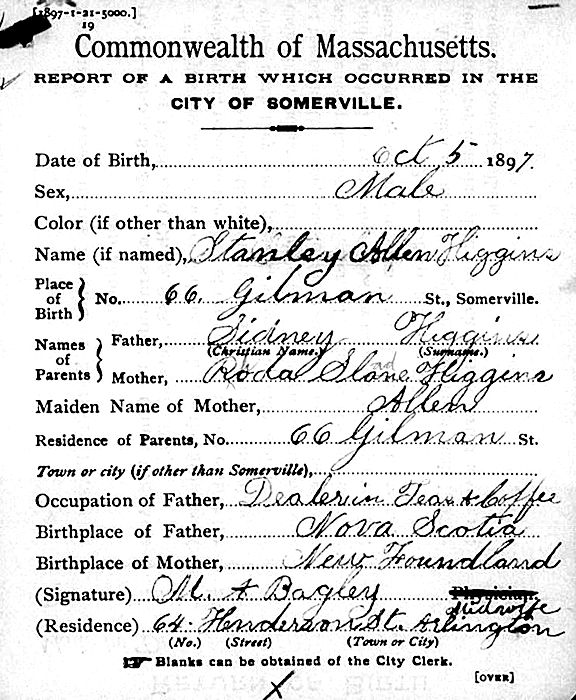 [1897-1-21-5000.]
19
Commonwealth of Massachusetts.
REPORT OF A BIRTH WHICH OCCURRED IN THE
CITY OF SOMERVILLE.
Date of Birth, Oct 5 1897.
Sex, Male
Color (if other than white),
Name (if named), Stanley Allen Higgins
Place of Birth } No. 66. Gilman St., Somerville.
Names of Parents } Father, Sidney Higgins
(Christian Name.) (Surname.)
Mother, Roda Higgins
Maiden Name of Mother, Allen
Residence of Parents, No. 66 Gilman St.
Town or city (if other than Somerville),
Occupation of Father, Dealer in Teas & Coffee
Birthplace of Father, Nova Scotia
Birthplace of Mother, New Foundland
(Signature) M. A Bagley Physician.
Midwife
(Residence) 64. Henderson St. Arlington
(No.) (Street) (Town or City)
☞ Blanks can be obtained of the City Clerk.
[OVER]
X